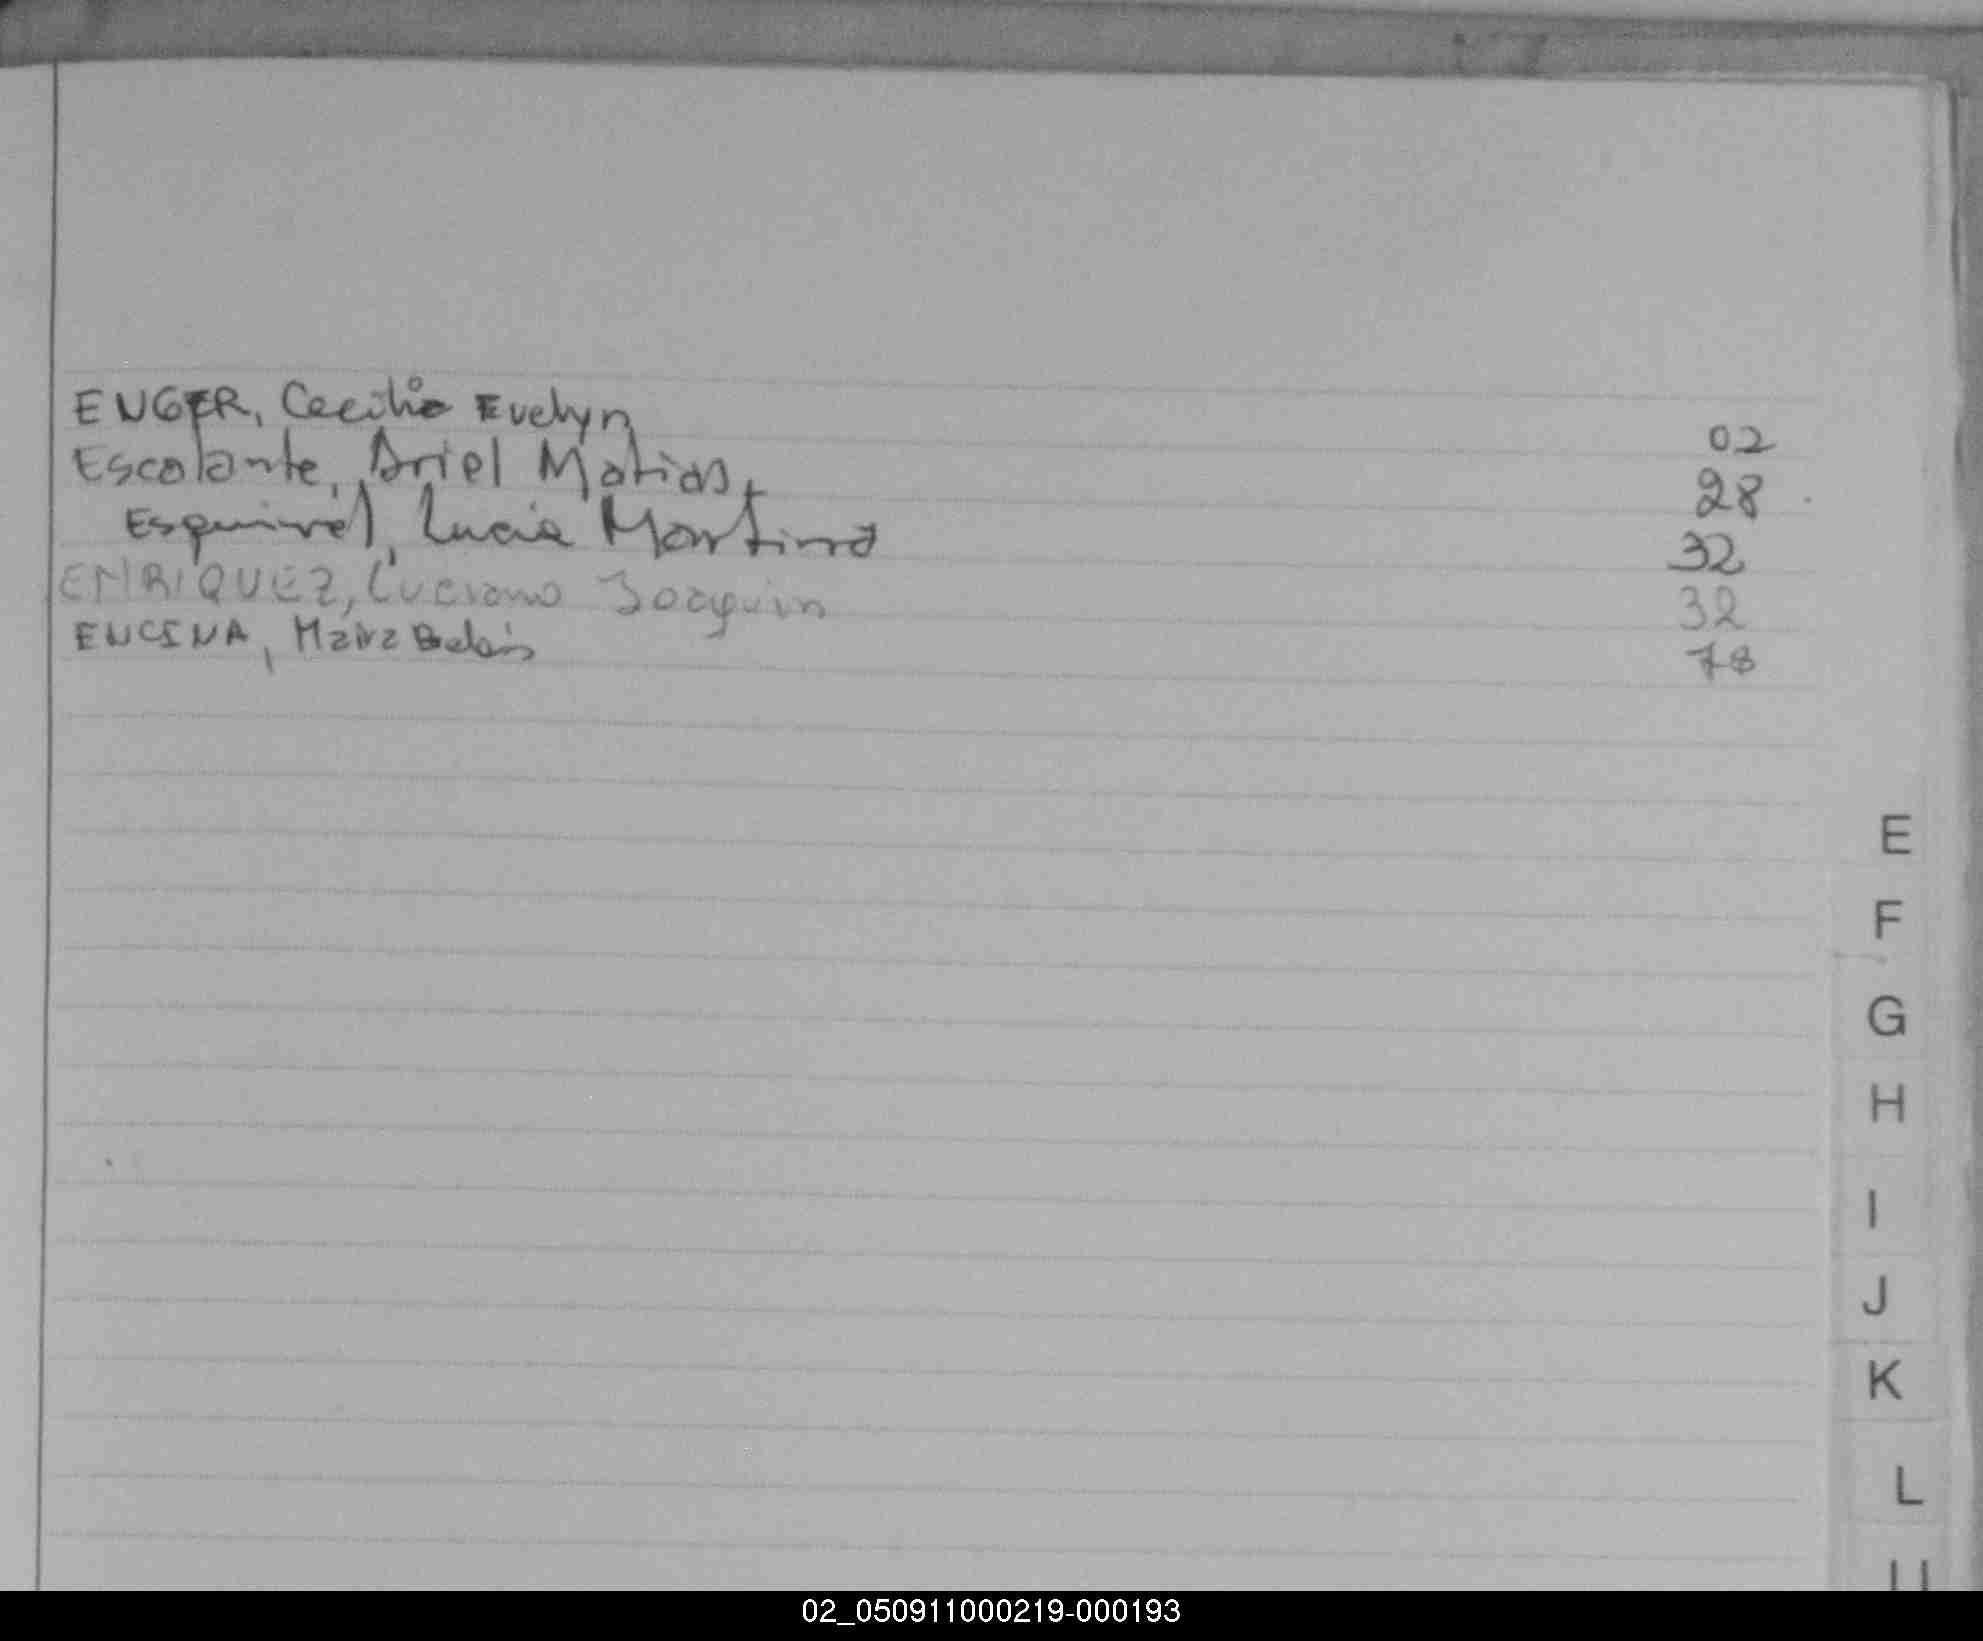 ENGER, Cecilia Evelyn 02
Escalante, Ariel Matias 28
Esquivel, Lucia Martina 32
ENRIQUEZ, Luciano Joaquin 32
ENCINA, Maira Belén 78
E
F
G
H
I
J
K
L
02_050911000219-000193